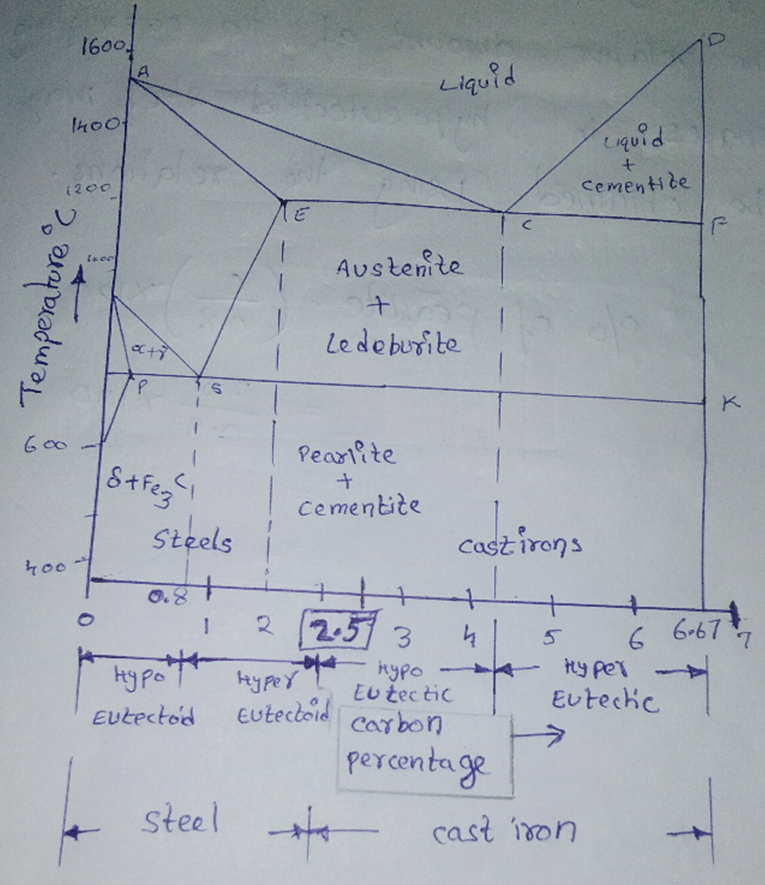 1600
A
D
Liquid
1400
Liquid
+
cementite
1200
E
C
F
Temperature °C
1000
Austenite
+
Ledeburite
α+γ
P
S
K
600
Pearlite
+
cementite
δ+Fe3C
Steels
cast irons
400
0.8
0
1
2
2.5
3
4
5
6
6.67
7
Hypo
Eutectoid
Hyper
Eutectoid
Hypo
Eutectic
Hyper
Eutectic
carbon
percentage
Steel
cast iron